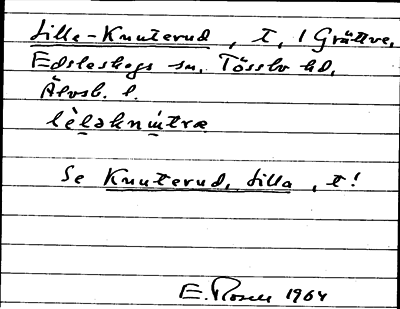 Lilla-Knuterud, t, i Grättve,
Edsleskogs sn. Tössbo hd,
Älvsb. l.
lèlaknùtræ
Se Knuterud, Lilla, t!
E. Rosell 1964